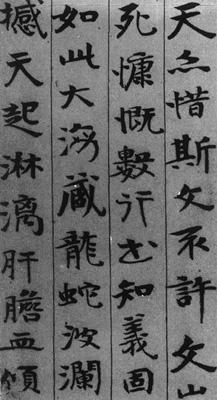 天亦惜斯文不許文山
死慷慨數行書知義固
如此大海藏龍蛇波瀾
撼天起淋漓肝膽血頌